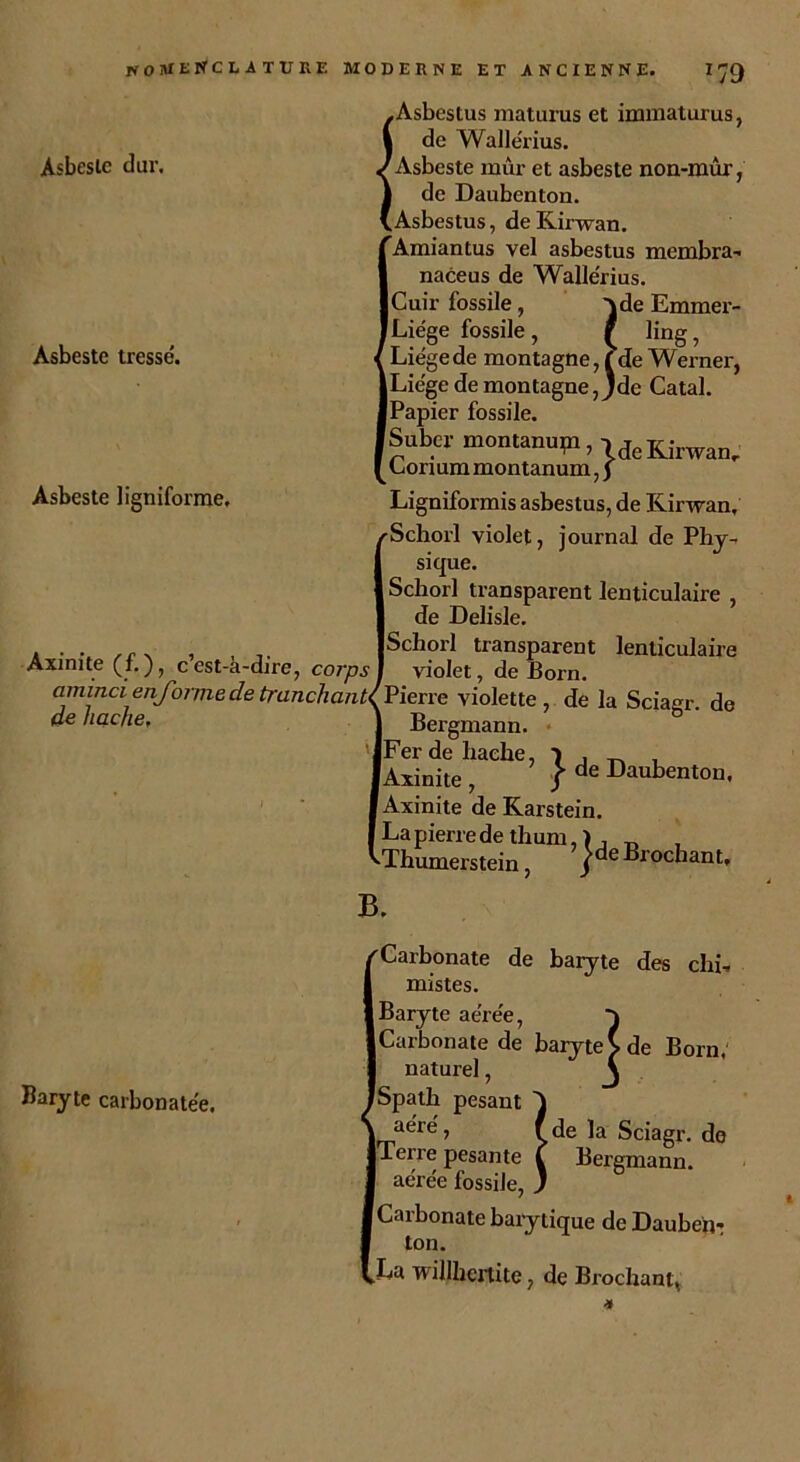 NOMENCLATURE MODERNE ET ANCIENNE. 179
Asbeste dur.
Asbestus maturus et immaturus,
de Wallérius.
Asbeste mûr et asbeste non-mûr,
de Daubenton.
Asbestus, de Kirwan.
Asbeste tressé.
Amiantus vel asbestus membra-
naceus de Wallérius.
Cuir fossile,
Liége fossile,
Liége de montagne,
Liége de montagne,
de Emmer-
ling,
de Werner,
de Catal.
Papier fossile.
Suber montanum,
Corium montanum,
de Kirwan.
Asbeste ligniforme.
Ligniformis asbestus, de Kirwan.
Axinite (f.), c'est-à-dire, corps
aminci en forme de tranchant
de hache.
Schorl violet, journal de Phy-
sique.
Schorl transparent lenticulaire,
de Delisle.
Schorl transparent lenticulaire
violet, de Born.
Pierre violette, de la Sciagr. de
Bergmann.
Fer de hache,
Axinite,
de Daubenton.
Axinite de Karstein.
La pierre de thum,
Thumerstein,
de Brochant.
B.
Baryte carbonatée.
Carbonate de baryte des chi-
mistes.
Baryte aérée,
Carbonate de baryte
naturel,
de Born.
Spath pesant
aéré,
Terre pesante
aérée fossile,
de la Sciagr. de
Bergmann.
Carbonate barytique de Dauben-
ton.
La willhertite, de Brochant,
*